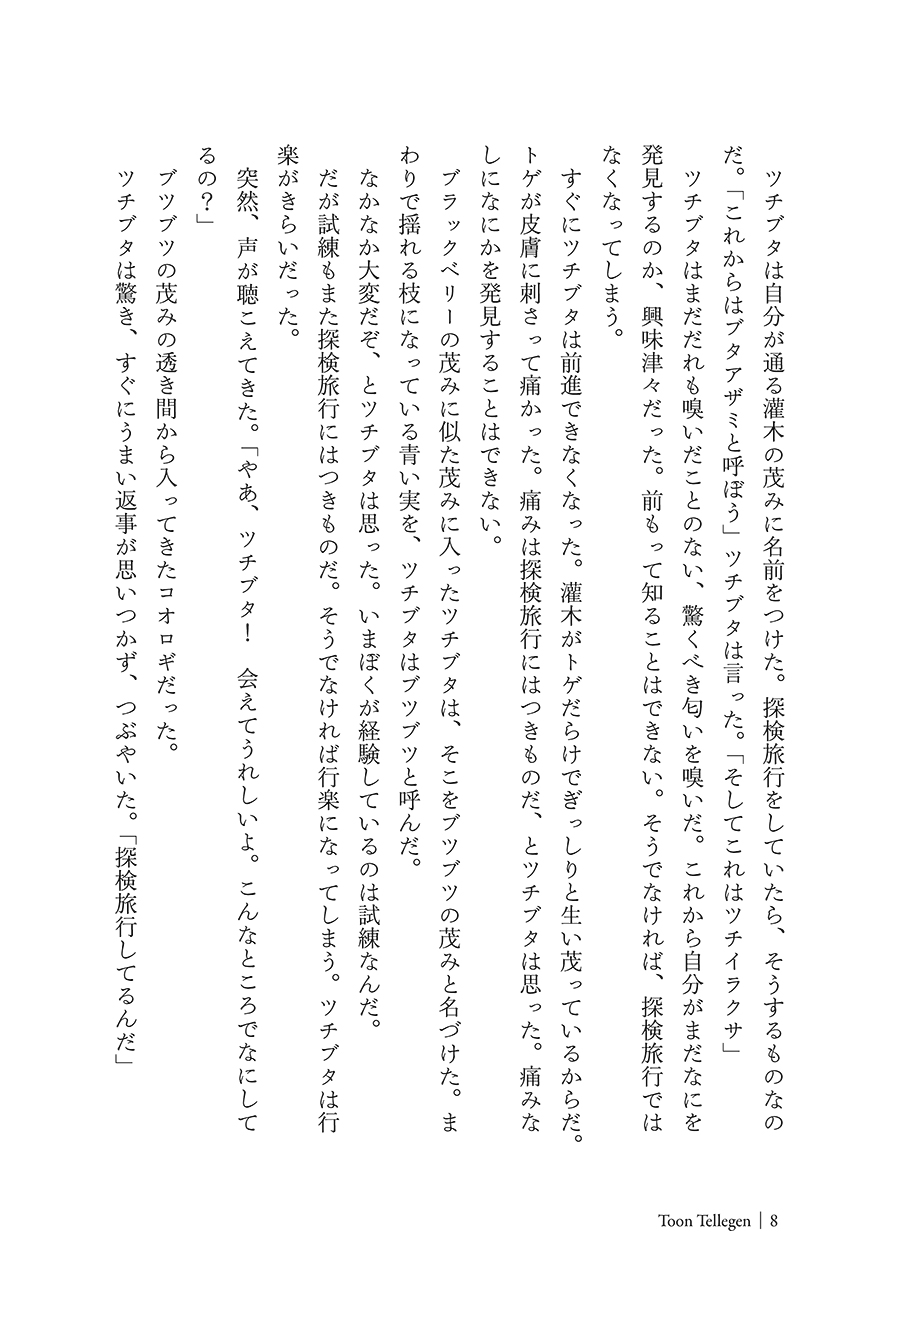 ツチブタは自分が通る灌木の茂みに名前をつけた。探検旅行をしていたら、そうするものなの
だ。「これからはブタアザミと呼ぼう」ツチブタは言った。「そしてこれはツチイラクサ」
　ツチブタはまだだれも嗅いだことのない、驚くべき匂いを嗅いだ。これから自分がまだなにを
発見するのか、興味津々だった。前もって知ることはできない。そうでなければ、探検旅行では
なくなってしまう。
　すぐにツチブタは前進できなくなった。灌木がトゲだらけでぎっしりと生い茂っているからだ。
トゲが皮膚に刺さって痛かった。痛みは探検旅行にはつきものだ、とツチブタは思った。痛みな
しになにかを発見することはできない。
　ブラックベリーの茂みに似た茂みに入ったツチブタは、そこをブツブツの茂みと名づけた。ま
わりで揺れる枝になっている青い実を、ツチブタはブツブツと呼んだ。
　なかなか大変だぞ、とツチブタは思った。いまぼくが経験しているのは試練なんだ。
　だが試練もまた探検旅行にはつきものだ。そうでなければ行楽になってしまう。ツチブタは行
楽がきらいだった。
　突然、声が聴こえてきた。「やあ、ツチブタ！　会えてうれしいよ。こんなところでなにして
るの？」
　ブツブツの茂みの透き間から入ってきたコオロギだった。
　ツチブタは驚き、すぐにうまい返事が思いつかず、つぶやいた。「探検旅行してるんだ」
Toon Tellegen | 8